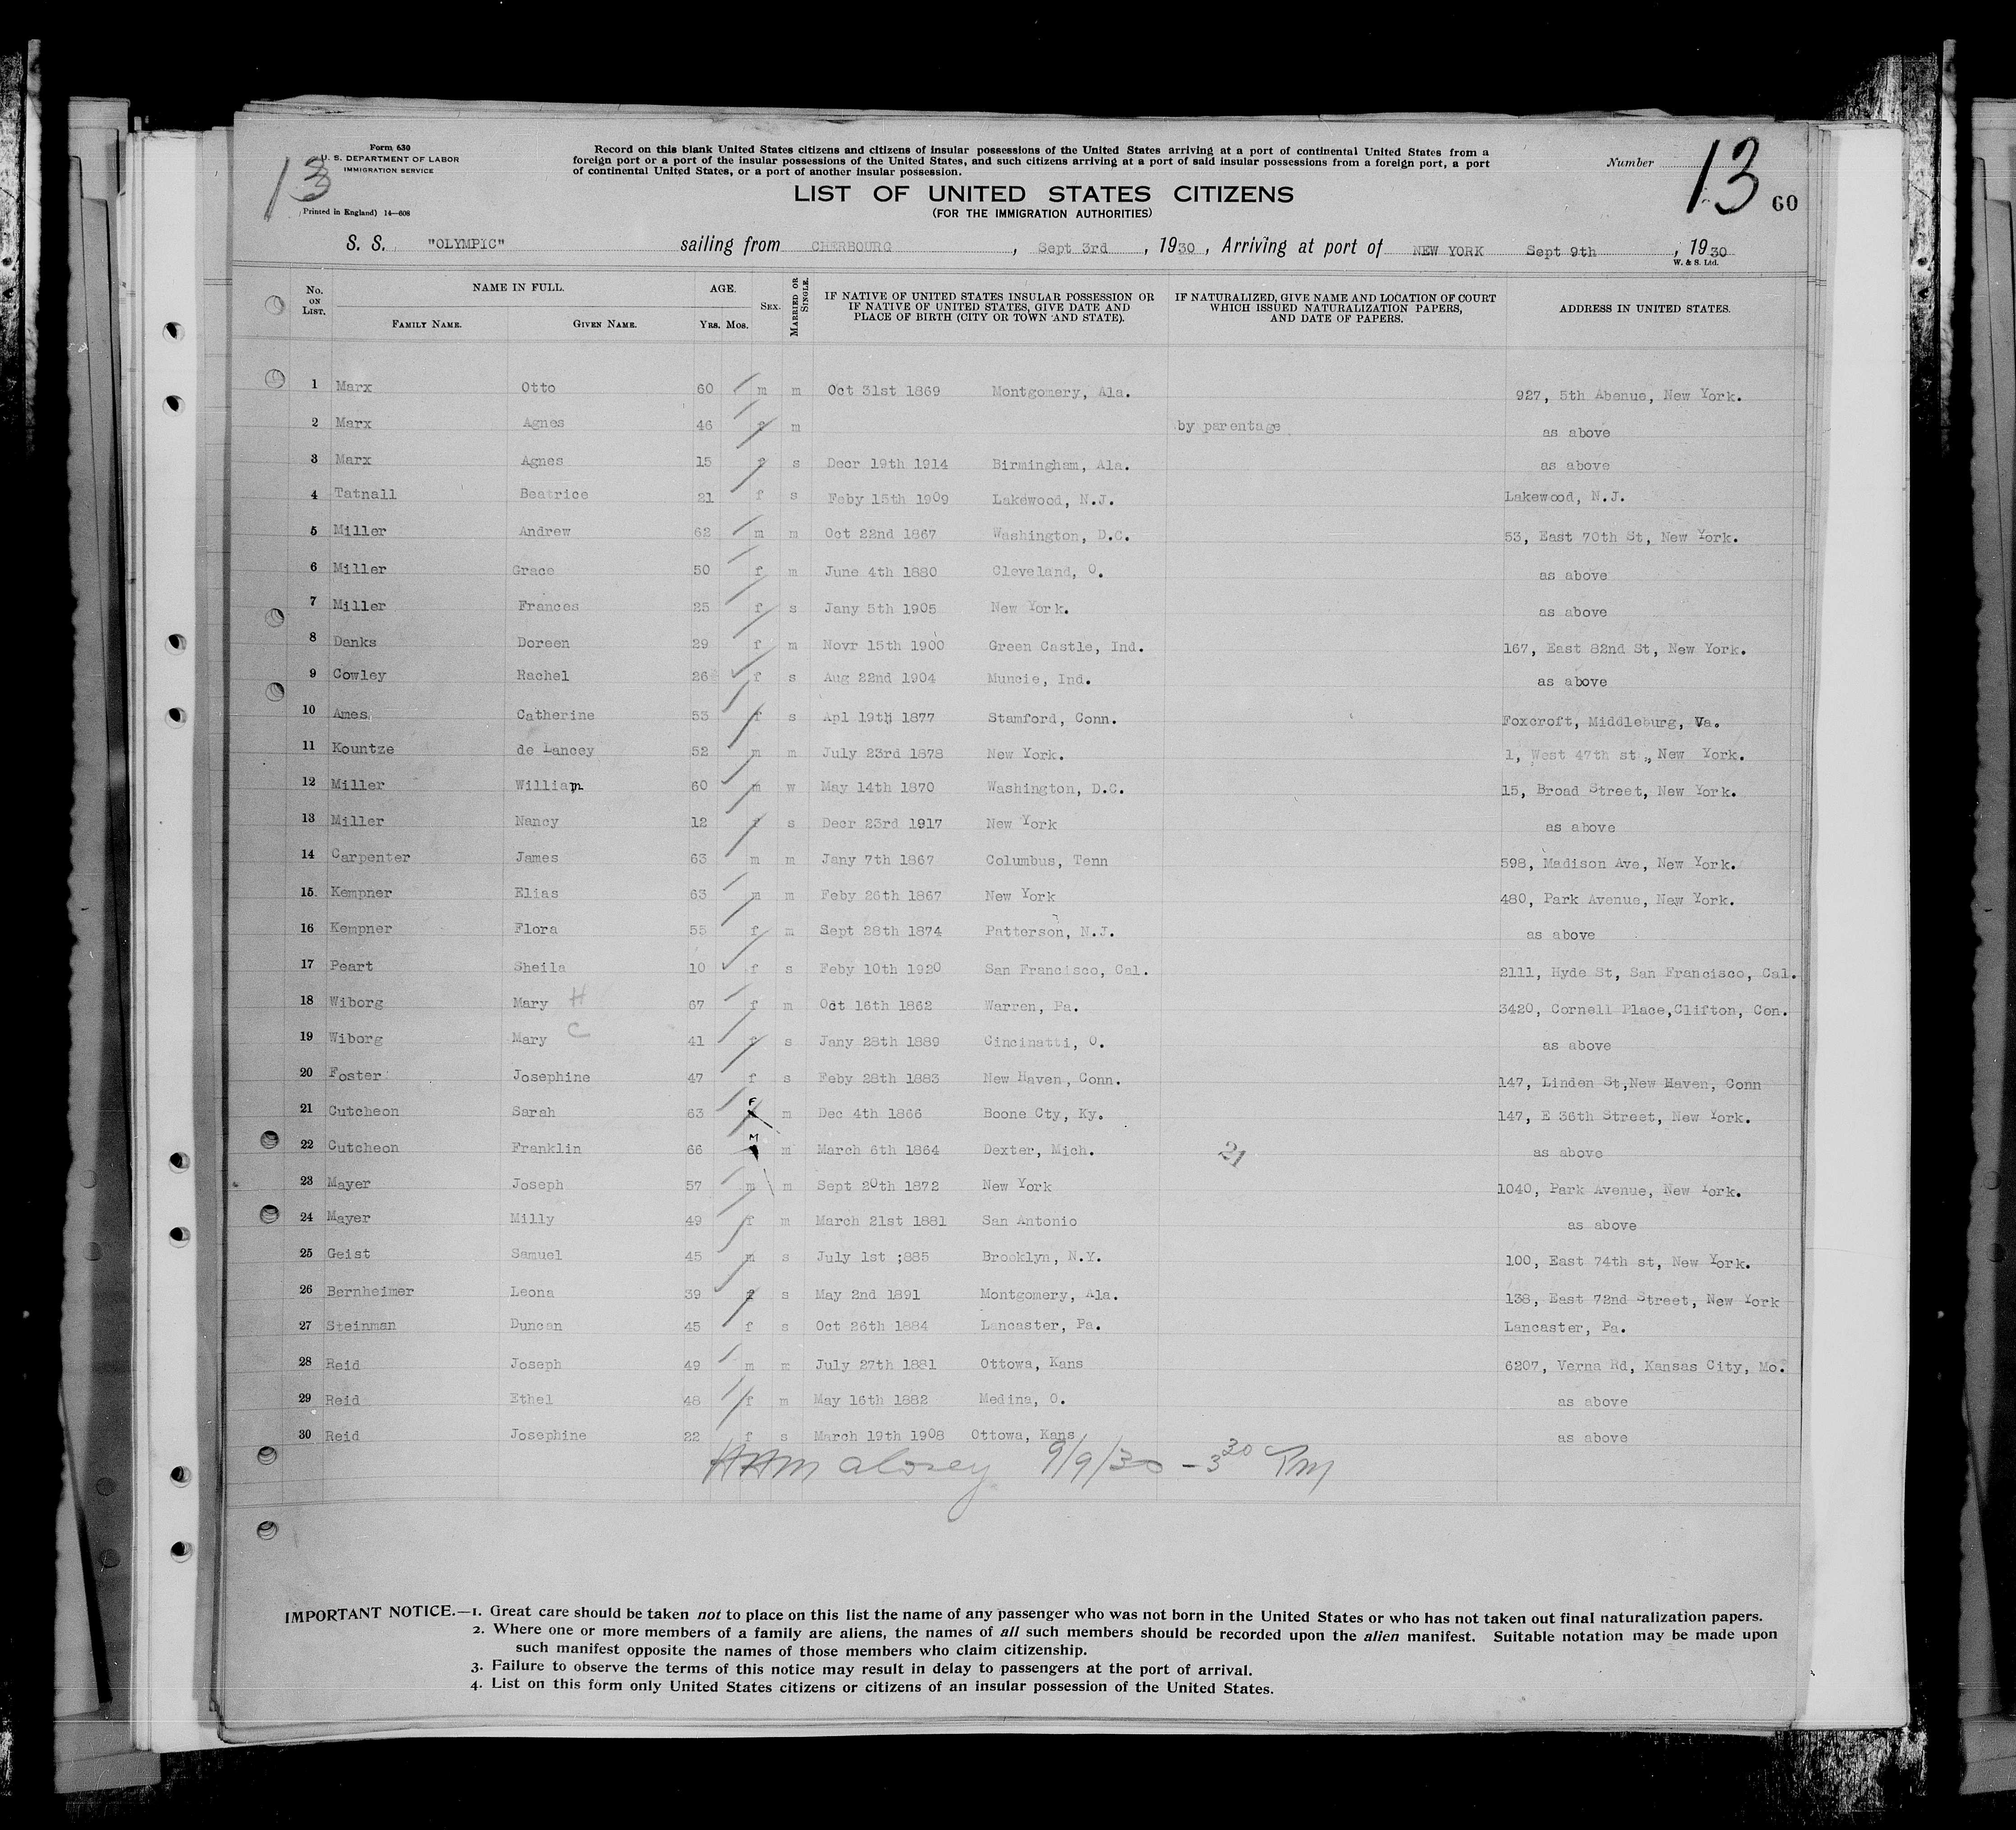 Form 630
U. S. DEPARTMENT OF LABOR
IMMIGRATION SERVICE
13
(Printed in England) 14—608
Record on this blank United States citizens and citizens of insular possessions of the United States arriving at a port of continental United States from a
foreign port or a port of the insular possessions of the United States, and such citizens arriving at a port of said insular possessions from a foreign port, a port
of continental United States, or a port of another insular possession.
Number 13
60
LIST OF UNITED STATES CITIZENS
(FOR THE IMMIGRATION AUTHORITIES)
S. S. "OLYMPIC" sailing from CHERBOURG, Sept 3rd, 1930, Arriving at port of NEW YORK Sept 9th, 1930
W. & S. Ltd.
No. ON LIST. NAME IN FULL. FAMILY NAME. GIVEN NAME. AGE. YRS. MOS. SEX. MARRIED OR SINGLE. IF NATIVE OF UNITED STATES INSULAR POSSESSION OR IF NATIVE OF UNITED STATES, GIVE DATE AND PLACE OF BIRTH (CITY OR TOWN AND STATE). IF NATURALIZED, GIVE NAME AND LOCATION OF COURT WHICH ISSUED NATURALIZATION PAPERS, AND DATE OF PAPERS. ADDRESS IN UNITED STATES.
1 Marx Otto 60 m m Oct 31st 1869 Montgomery, Ala. 927, 5th Abenue, New York.
2 Marx Agnes 46 f m by parentage as above
3 Marx Agnes 15 f s Decr 19th 1914 Birmingham, Ala. as above
4 Tatnall Beatrice 21 f s Feby 15th 1909 Lakewood, N.J. Lakewood, N.J.
5 Miller Andrew 62 m m Oct 22nd 1867 Washington, D.C. 53, East 70th St, New York.
6 Miller Grace 50 f m June 4th 1880 Cleveland, O. as above
7 Miller Frances 25 f s Jany 5th 1905 New York. as above
8 Danks Doreen 29 f m Novr 15th 1900 Green Castle, Ind. 167, East 82nd St, New York.
9 Cowley Rachel 26 f s Aug 22nd 1904 Muncie, Ind. as above
10 Ames Catherine 53 f s Apl 19th 1877 Stamford, Conn. Foxcroft, Middleburg, Va.
11 Kountze de Lancey 52 m m July 23rd 1878 New York. 1, West 47th st., New York.
12 Miller William 60 m w May 14th 1870 Washington, D.C. 15, Broad Street, New York.
13 Miller Nancy 12 f s Decr 23rd 1917 New York as above
14 Carpenter James 63 m m Jany 7th 1867 Columbus, Tenn 598, Madison Ave, New York.
15. Kempner Elias 63 m m Feby 26th 1867 New York 480, Park Avenue, New York.
16 Kempner Flora 55 f m Sept 28th 1874 Patterson, N.J. as above
17 Peart Sheila 10 f s Feby 10th 1920 San Francisco, Cal. 2111, Hyde St, San Francisco, Cal.
18 Wiborg Mary H 67 f m Oct 16th 1862 Warren, Pa. 3420, Cornell Place,Clifton, Con.
19 Wiborg Mary C 41 f s Jany 28th 1889 Cincinatti, O. as above
20 Foster Josephine 47 f s Feby 28th 1883 New Haven, Conn. 147, Linden St,New Haven, Conn
21 Cutcheon Sarah 63 F m Dec 4th 1866 Boone Cty, Ky. 147, E 36th Street, New York.
22 Cutcheon Franklin 66 M m March 6th 1864 Dexter, Mich. 21 as above
23 Mayer Joseph 57 m m Sept 20th 1872 New York 1040, Park Avenue, New York.
24 Mayer Milly 49 f m March 21st 1881 San Antonio as above
25 Geist Samuel 45 m s July 1st ;885 Brooklyn, N.Y. 100, East 74th st, New York.
26 Bernheimer Leona 39 f s May 2nd 1891 Montgomery, Ala. 138, East 72nd Street, New York
27 Steinman Duncan 45 f s Oct 26th 1884 Lancaster, Pa. Lancaster, Pa.
28 Reid Joseph 49 m m July 27th 1881 Ottowa, Kans 6207, Verna Rd, Kansas City, Mo.
29 Reid Ethel 48 f m May 16th 1882 Medina, O. as above
30 Reid Josephine 22 f s March 19th 1908 Ottowa, Kans as above
9/9/30 - 3 30 Pm
IMPORTANT NOTICE.—1. Great care should be taken not to place on this list the name of any passenger who was not born in the United States or who has not taken out final naturalization papers.
2. Where one or more members of a family are aliens, the names of all such members should be recorded upon the alien manifest. Suitable notation may be made upon
such manifest opposite the names of those members who claim citizenship.
3. Failure to observe the terms of this notice may result in delay to passengers at the port of arrival.
4. List on this form only United States citizens or citizens of an insular possession of the United States.